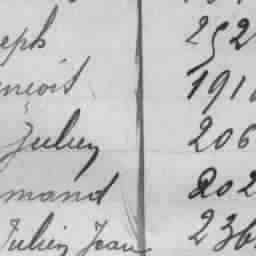 eph 252
ençois 191
Julien 206
mand 202
Julien Jean 236